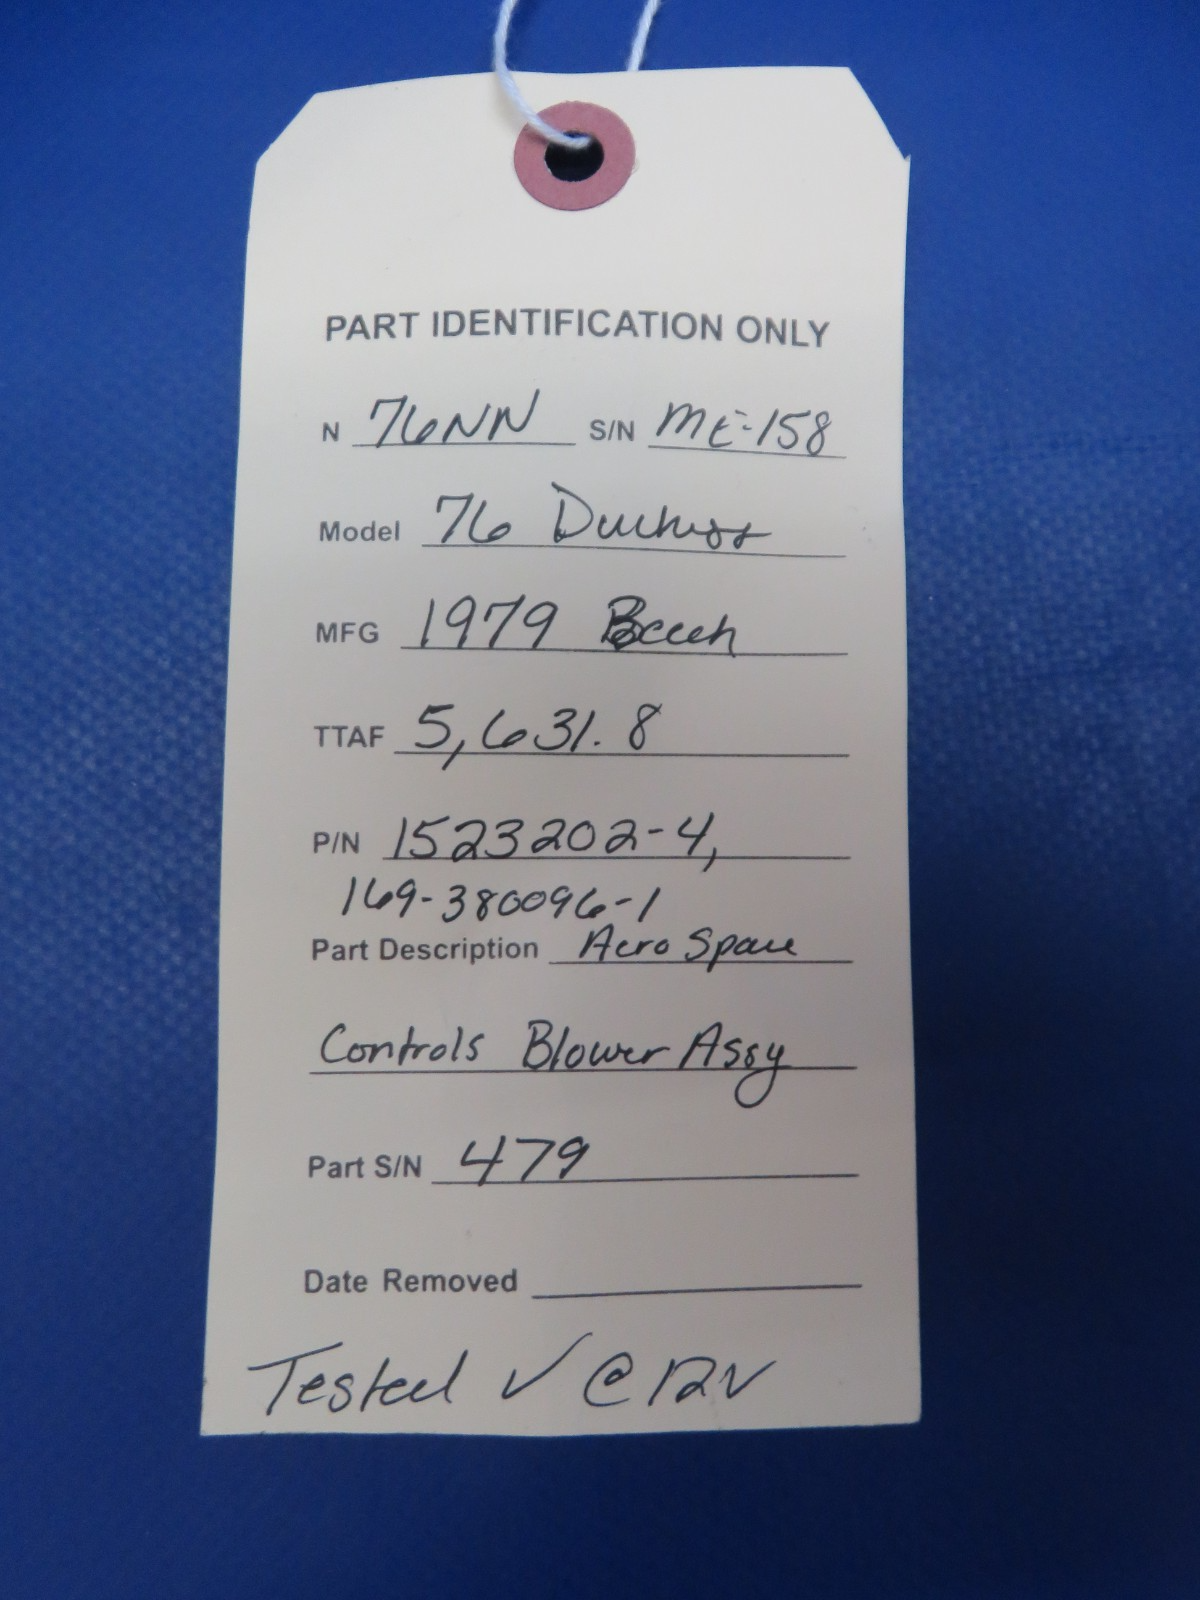 PART IDENTIFICATION ONLY
N 76NN S/N ME-158
Model 76 Duchess
MFG 1979 Beech
TTAF 5,631.8
P/N 1523202-4,
169-380096-1
Part Description Aero Space
Controls Blower Assy
Part S/N 479
Date Removed
Tested ✓ @ 12V